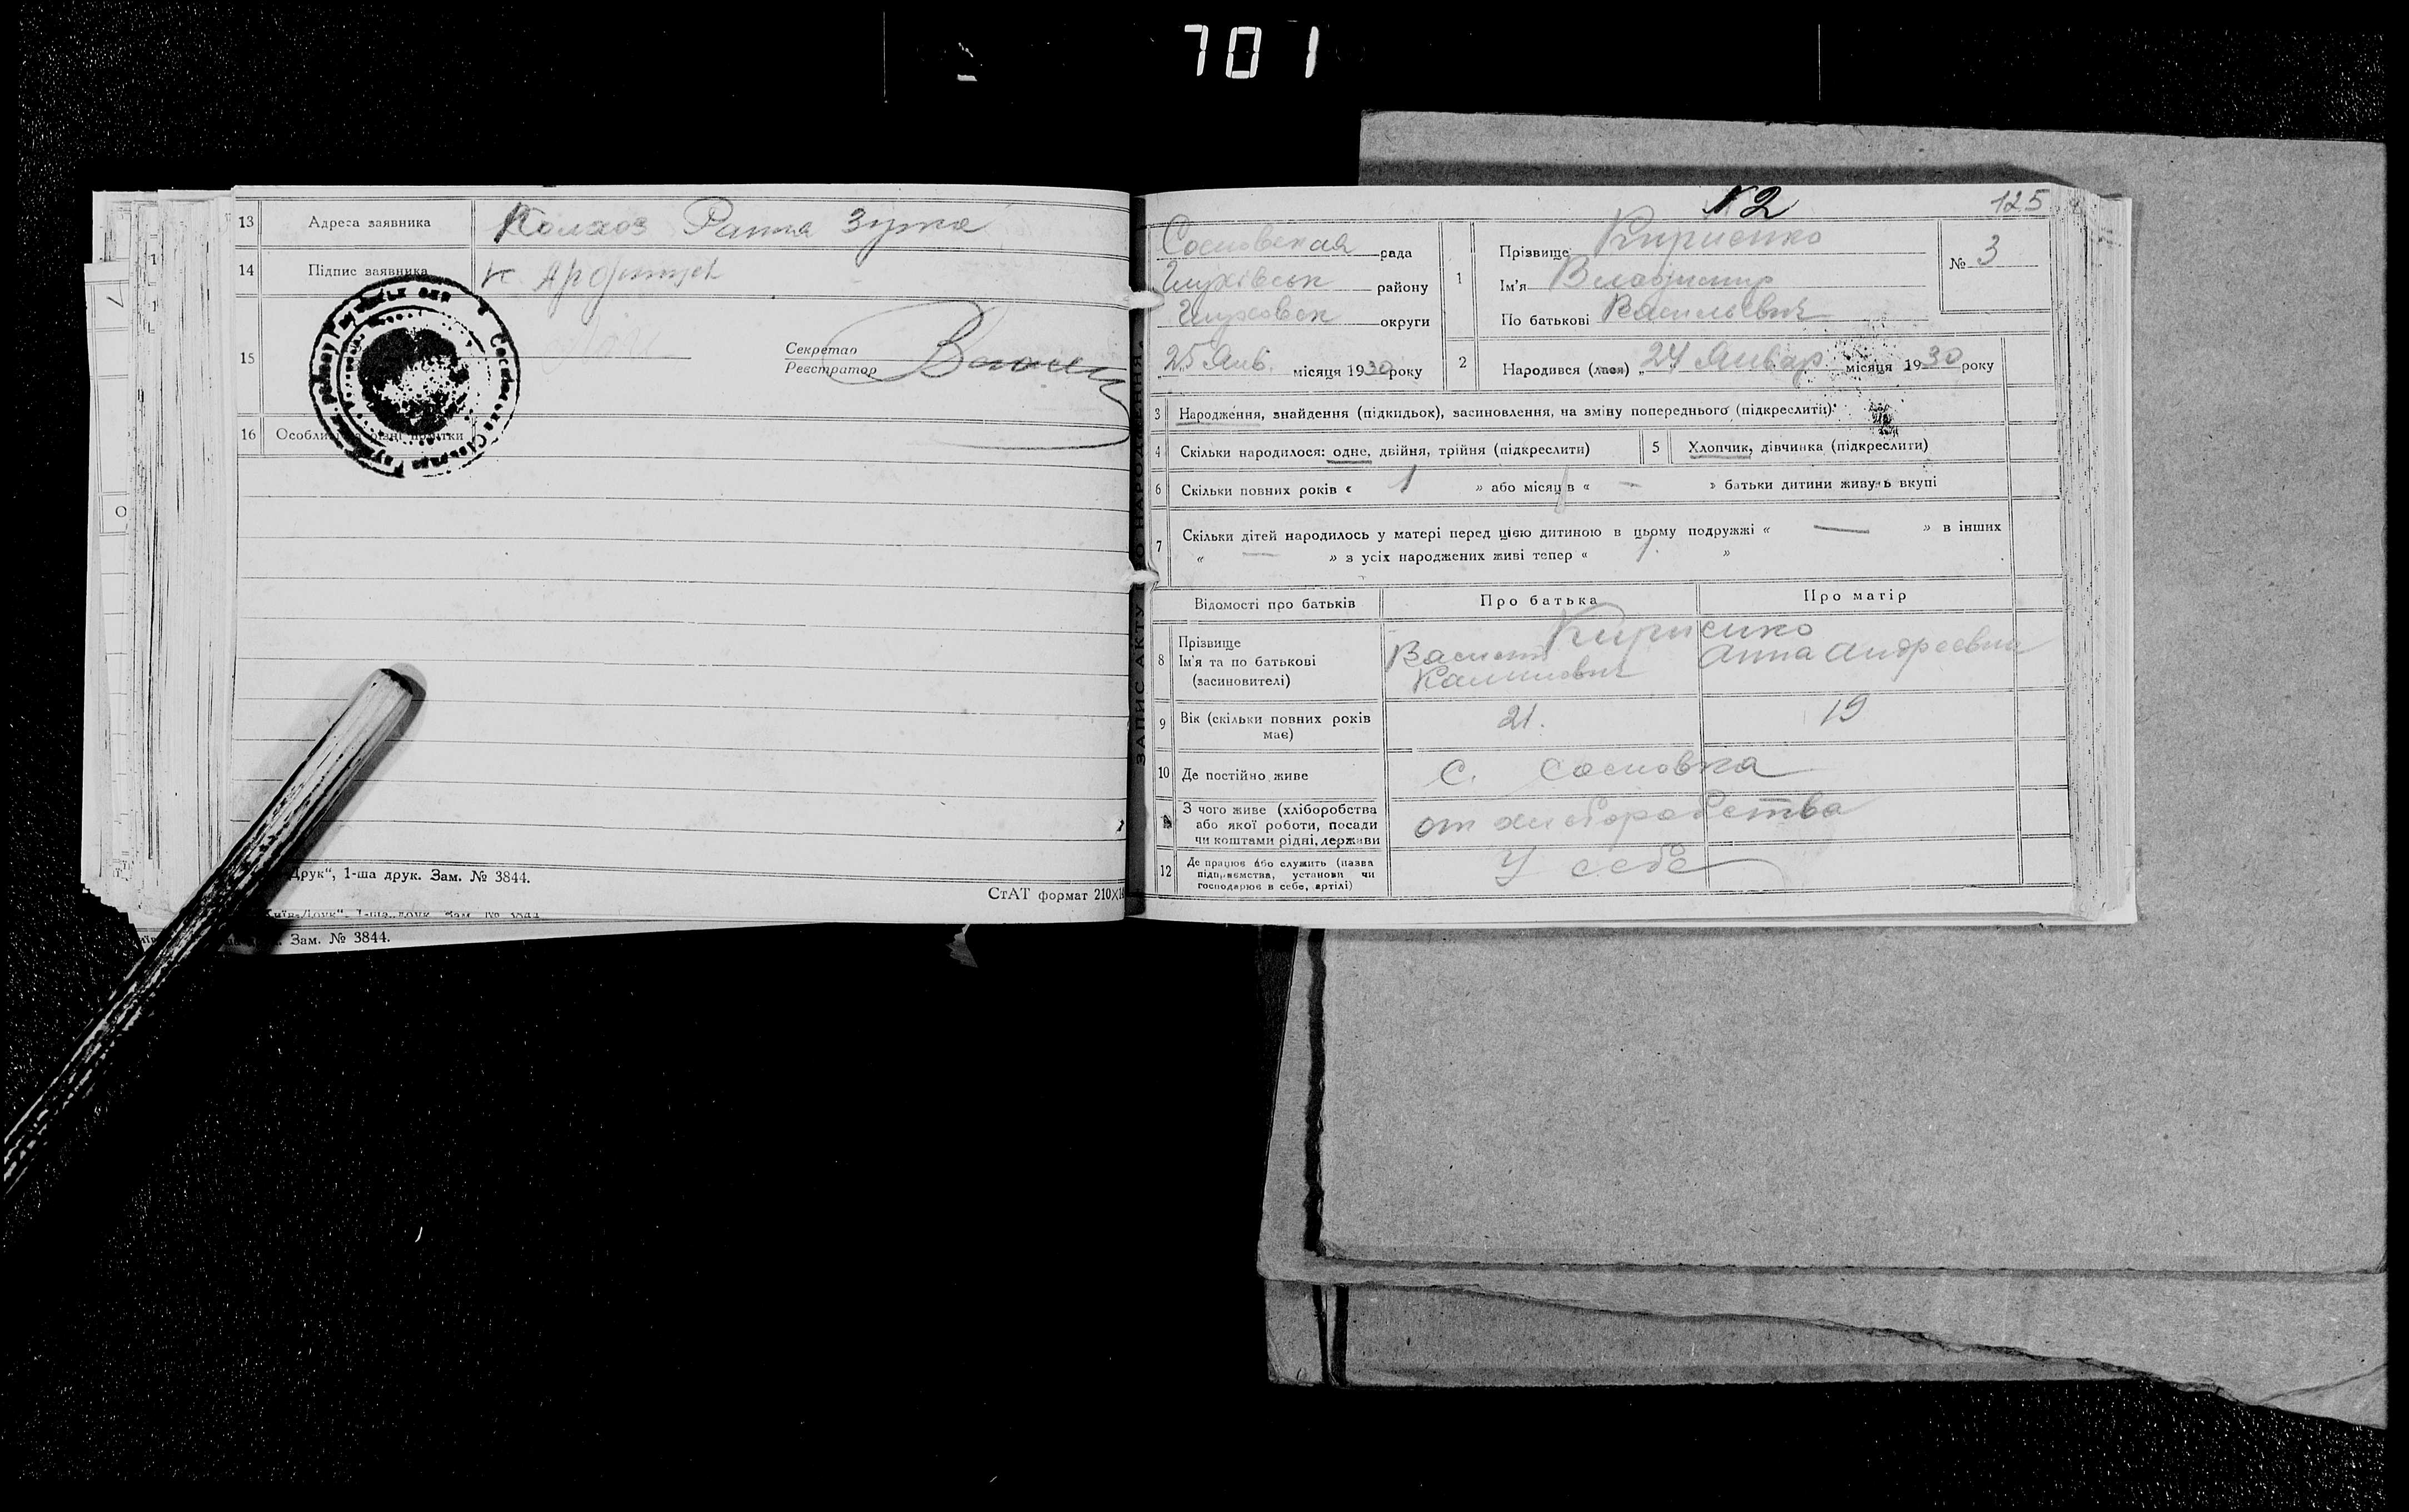 701
13 Адреса заявника Колхоз
14 Підпис заявника
15 Секретар
Реєстратор
16
Друк", 1-ша друк. Зам. № 3844.
СтАТ формат 210×
Зам. № 3844.
ЗАПИС АКТУ ПРО НАРОДЖЕННЯ
N 2
125
Сосновская рада
Глухівськ району
Глуховск округи
25 Янв. місяця 1930 року
1 Прізвище Кириенко
Ім'я Владимир
По батькові Васильевич
№ 3
2 Народився (лася) „24 Январ місяця 1930 року
3 Народження, знайдення (підкидьок), засиновлення, на зміну попереднього (підкреслити)
4 Скільки народилося: одне, двійня, трійня (підкреслити)
5 Хлопчик, дівчинка (підкреслити)
6 Скільки повних років « 1 » або місяців « — » батьки дитини живуть вкупі
7 Скільки дітей народилось у матері перед цією дитиною в цьому подружжі « — » в інших
« — » з усіх народжених живі тепер « 1. »
Відомості про батьків Про батька Про матір
8 Прізвище Кириенко
Ім'я та по батькові Анна Андреевна
(засиновителі)
9 Вік (скільки повних років має) 21. 19
10 Де постійно живе С. Сосновка
З чого живе (хліборобства
або якої роботи, посади
чи коштами рідні, держави
от хлиборобства
12 Де працює або служить (назва
підприємства, установи чи
господарює в себе, артілі)
У себе